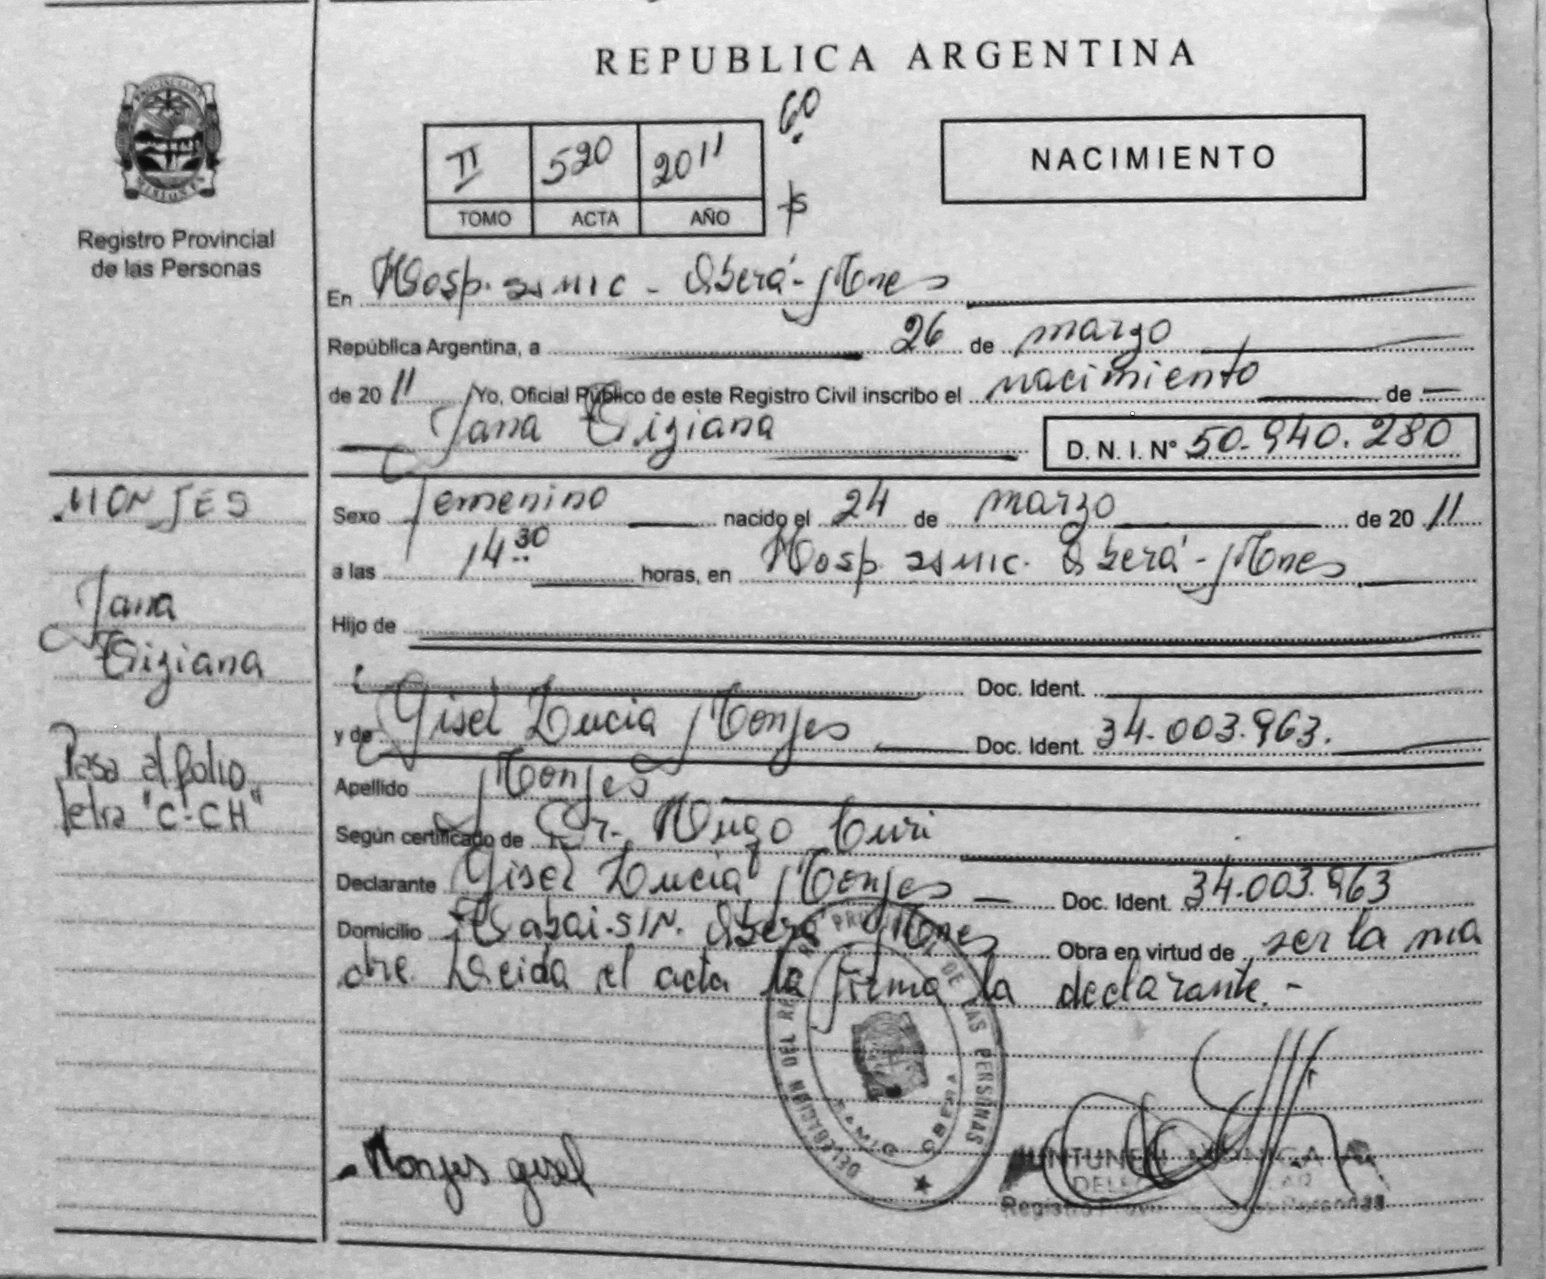 REPUBLICA ARGENTINA
60
II 520 2011
TOMO ACTA AÑO
NACIMIENTO
Registro Provincial
de las Personas
En Hosp. SAMIC - Oberá - Mnes
República Argentina, a 26 de marzo
de 2011 Yo, Oficial Público de este Registro Civil inscribo el nacimiento de
Jana Tiziana D. N. I. Nº 50.940.280
MONJES
Jana
Tiziana
Pasa al folio
letra "C-CH"
Sexo Femenino nacido el 24 de marzo de 2011
a las 14:30 horas, en Hosp SAMIC. Oberá - Mnes
Hijo de
Doc. Ident.
y de Gisel Lucia Monjes Doc. Ident. 34.003.963.
Apellido Monjes
Según certificado de Dr. Hugo Turi
Declarante Gisel Lucia Monjes Doc. Ident. 34.003.963
Domicilio S/N. Oberá Mnes Obra en virtud de ser la ma
dre Leida el acta la firma la declarante.-
DELEGACION DEL PROVINCIAL DE LAS PERSONAS
SAMIC OBERA
Monjes gisel
MONICA
Registro Personas